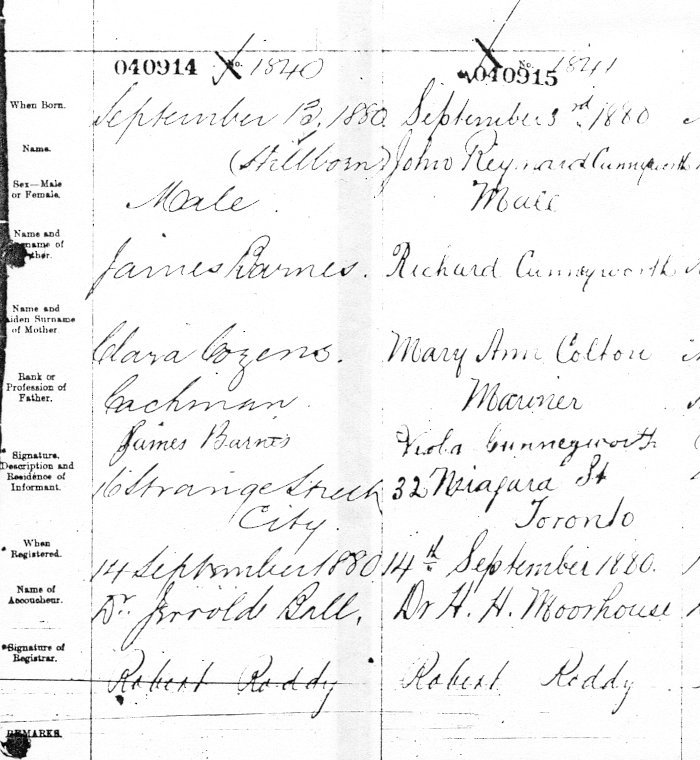 040914 No. 1840
No. 1841
040915
When Born. September 13, 1880. September 3rd, 1880
Name. (Stillborn) John Reynard Cunnyworth
Sex—Male or Female. Male. Male
Name and
of
Father. James Barnes. Richard Cunneyworth
Name and
Maiden Surname
of Mother Clara Cozens. Mary Ann Colton
Rank or
Profession of
Father. Coachman Mariner
Signature, James Barnes Viola Cunneyworth
Description and
Residence of
Informant. 16 Strange Street 32 Niagara St
City. Toronto
When
Registered. 14 September 1880 14th September 1880.
Name of
Accoucheur. Dr. Jerrold Ball. Dr H. H. Moorhouse
Signature of
Registrar. Robert Roddy Robert Roddy
REMARKS.